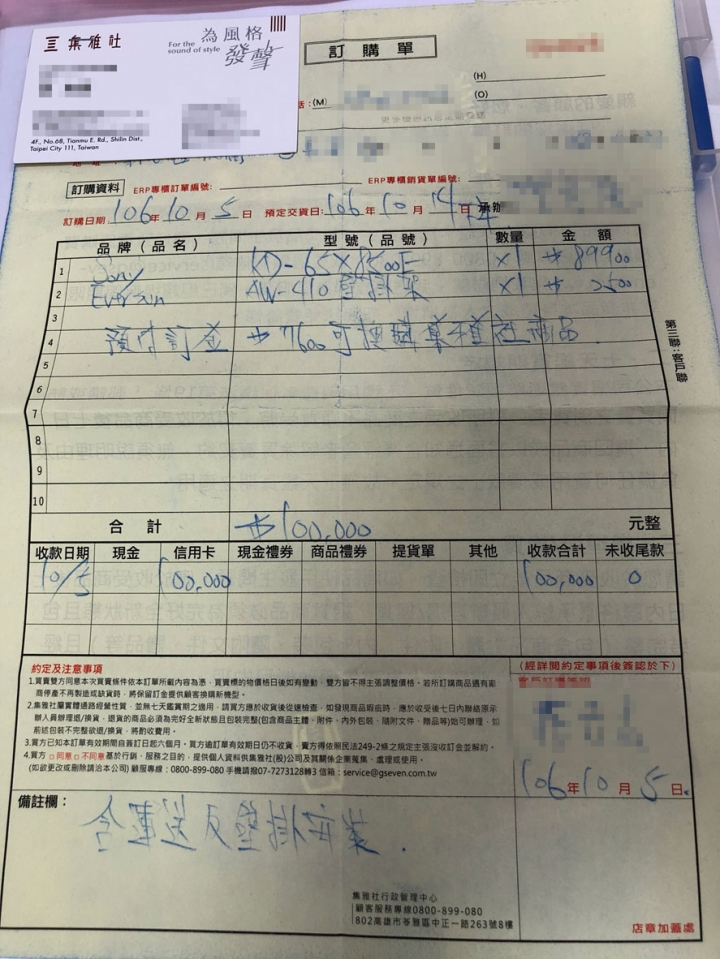 集雅社
For the
sound of style
為風格
發聲
4F., No.68, Tianmu E. Rd., Shilin Dist.,
Taipei City 111, Taiwan
訂購單
(H)
(M)
(O)
訂購資料 ERP專櫃訂單編號: ERP專櫃銷貨單編號:
訂購日期 106年10月5日 預定交貨日:106年10月14日
品牌(品名) 型號(品號) 數量 金額
1 Sony KD-65X8500E x1 $89900
2 Eversun AW-410壁掛架 x1 $2500
3
4 預付訂金 $7600可換購集雅社商品
5
6
7
8
9
10
第三聯:客戶聯
合計 $100,000 元整
收款日期 現金 信用卡 現金禮券 商品禮券 提貨單 其他 收款合計 未收尾款
10/5 100,000 100,000 0
約定及注意事項
1.買賣雙方同意本次買賣條件依本訂單所載內容為憑,買賣標的物價格日後如有變動,雙方皆不得主張調整價格。若所訂購商品遇有廠
商停產不再製造或缺貨時,將保留訂金提供顧客換購新機型。
2.集雅社屬實體通路經營性質,並無七天鑑賞期之適用,請買方應於收貨後從速檢查,如發現商品瑕疵時,應於收受後七日內聯絡原承
辦人員辦理退/換貨,退貨的商品必須為完好全新狀態且包裝完整(包含商品主體、附件、內外包裝、隨附文件、贈品等)始可辦理,如
前述包裝不完整欲退/換貨,將酌收費用。
3.買方已知本訂單有效期間自簽訂日起六個月。買方逾訂單有效期日仍不收貨,賣方得依照民法249-2條之規定主張沒收訂金並解約。
4.買方 □同意 □不同意基於行銷、服務之目的,提供個人資料供集雅社(股)公司及其關係企業蒐集、處理或使用。
(如欲更改或刪除請洽本公司) 顧服專線:0800-899-080 手機請撥07-7273128轉3 信箱:service@gseven.com.tw
(經詳閱約定事項後簽認於下)
客戶訂購簽認
106年10月5日
備註欄:
含運送及壁掛安裝.
集雅社行政管理中心
顧客服務專線0800-899-080
802高雄市苓雅區中正一路263號8樓
店章加蓋處